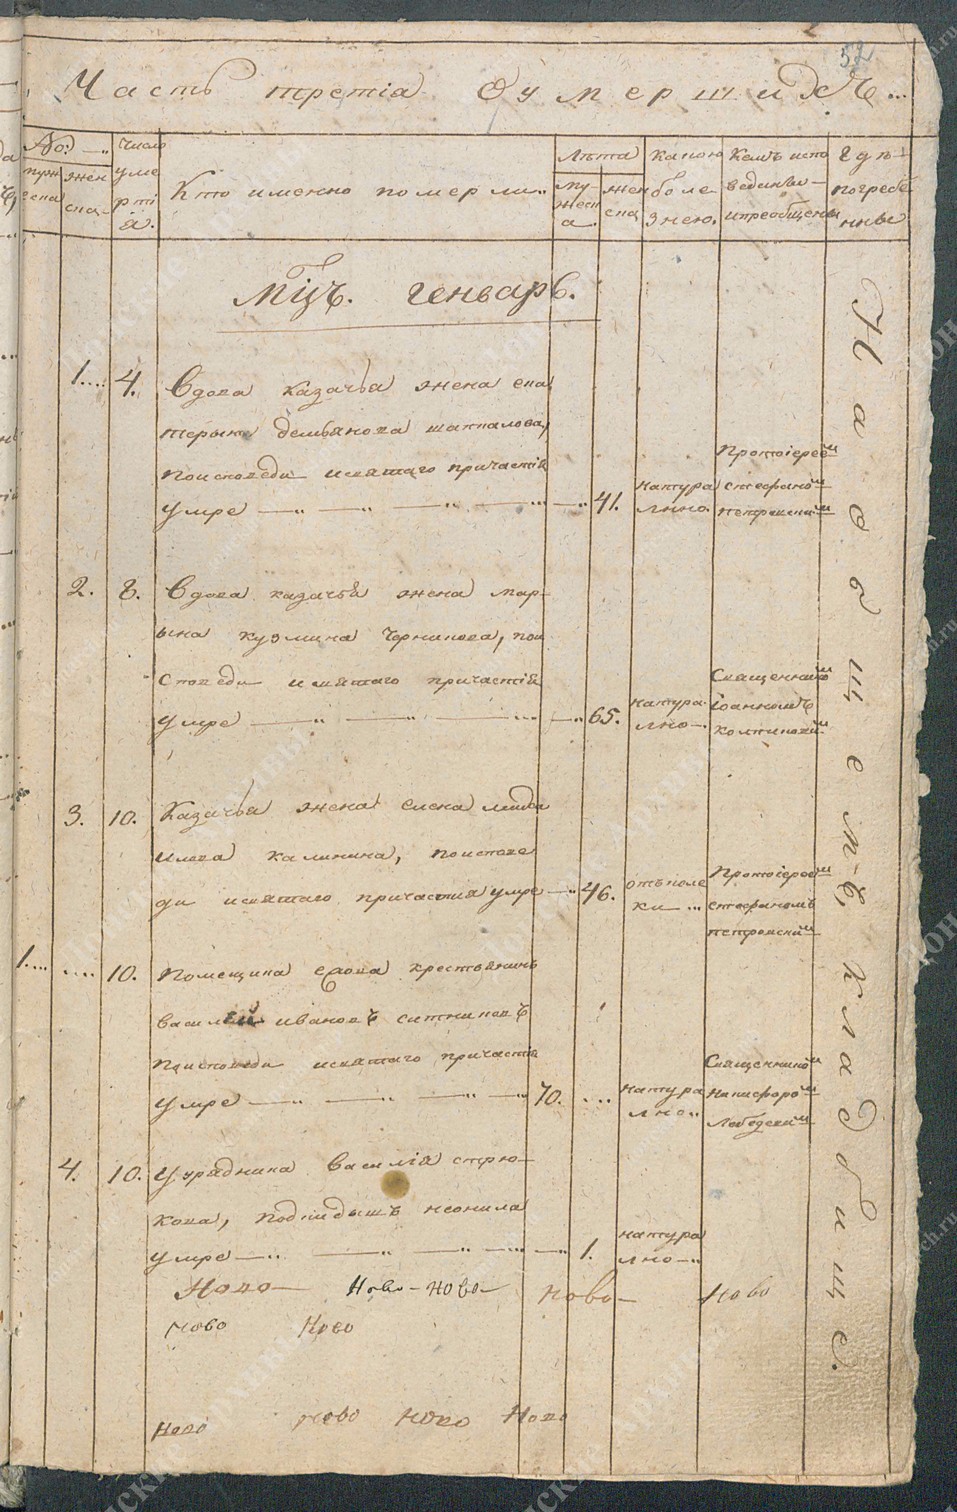 52
Часть третіа о умершихъ...
№:
Число
мужеска
женска
умертіа.
Кто именно померли..
Лѣта
мужеска
женска
какою болезнею.
Кемъ исповеданы и преобщены
Гдѣ погребенны
Мцъ. Генварь.
1.... 4. Вдова казачьа жена ека
терына демьянова шапкалова,
поисповеди исвятаго причастіа
умре 41. натура лно. Протоіереом стефаном петровским
2. 8. Вдова казачьа жена мар-
ына кузмина Черникова, пои
споведи исвятаго причастіа
умре 65. натура лно. Священником іоанномъ
3. 10. Казачьа жена елена
калинина, поиспове
ди исвятаго причастиа умре 46. Протоіереом стефаномъ петровским
1.... .... 10. Помещика ефова крестьянинъ
василей ивановъ ситниковъ
поисповеди исвятаго причастіа
умре 70. ... натура лно.. Священником никифором Лебедевым
4. 10. Урядника василіа стрю-
кова, подкидышъ неонила
умре 1. натура лно
На общемъ кладбище.
Ново Ново-Ново Ново Ново
Ново Ново
Ново Ново Ново Ново